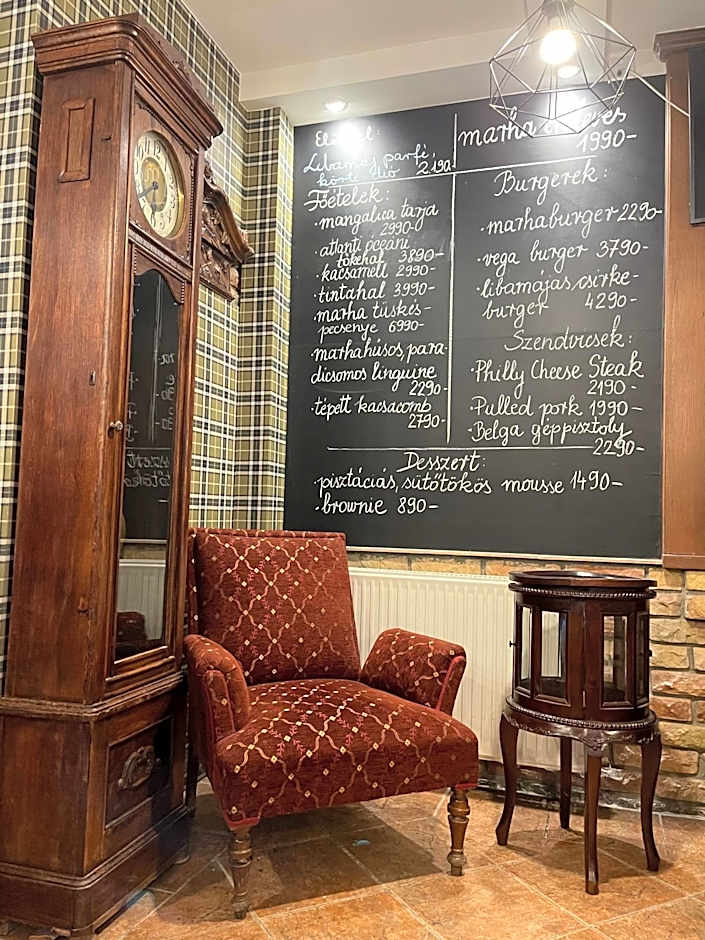 Libamáj parfé,
körte 2190-
Főételek:
·mangalica tarja
2990-
·atlanti óceáni
tőkehal 3890-
·kacsamell 2990-
·tintahal 3990-
·marha tüskés-
pecsenye 6990-
·marhahúsos, para-
dicsomos linguine
2290-
·tépett kacsacomb
2790-
marha
1990-
Burgerek:
·marhaburger 2290-
·vega burger 3790-
·libamájas, csirke-
burger 4290-
Szendvicsek:
·Philly Cheese Steak
2190-
·Pulled pork 1990-
·Belga géppisztoly
2290-
Desszert:
·pisztáciás, sütőtökös mousse 1490-
·brownie 890-